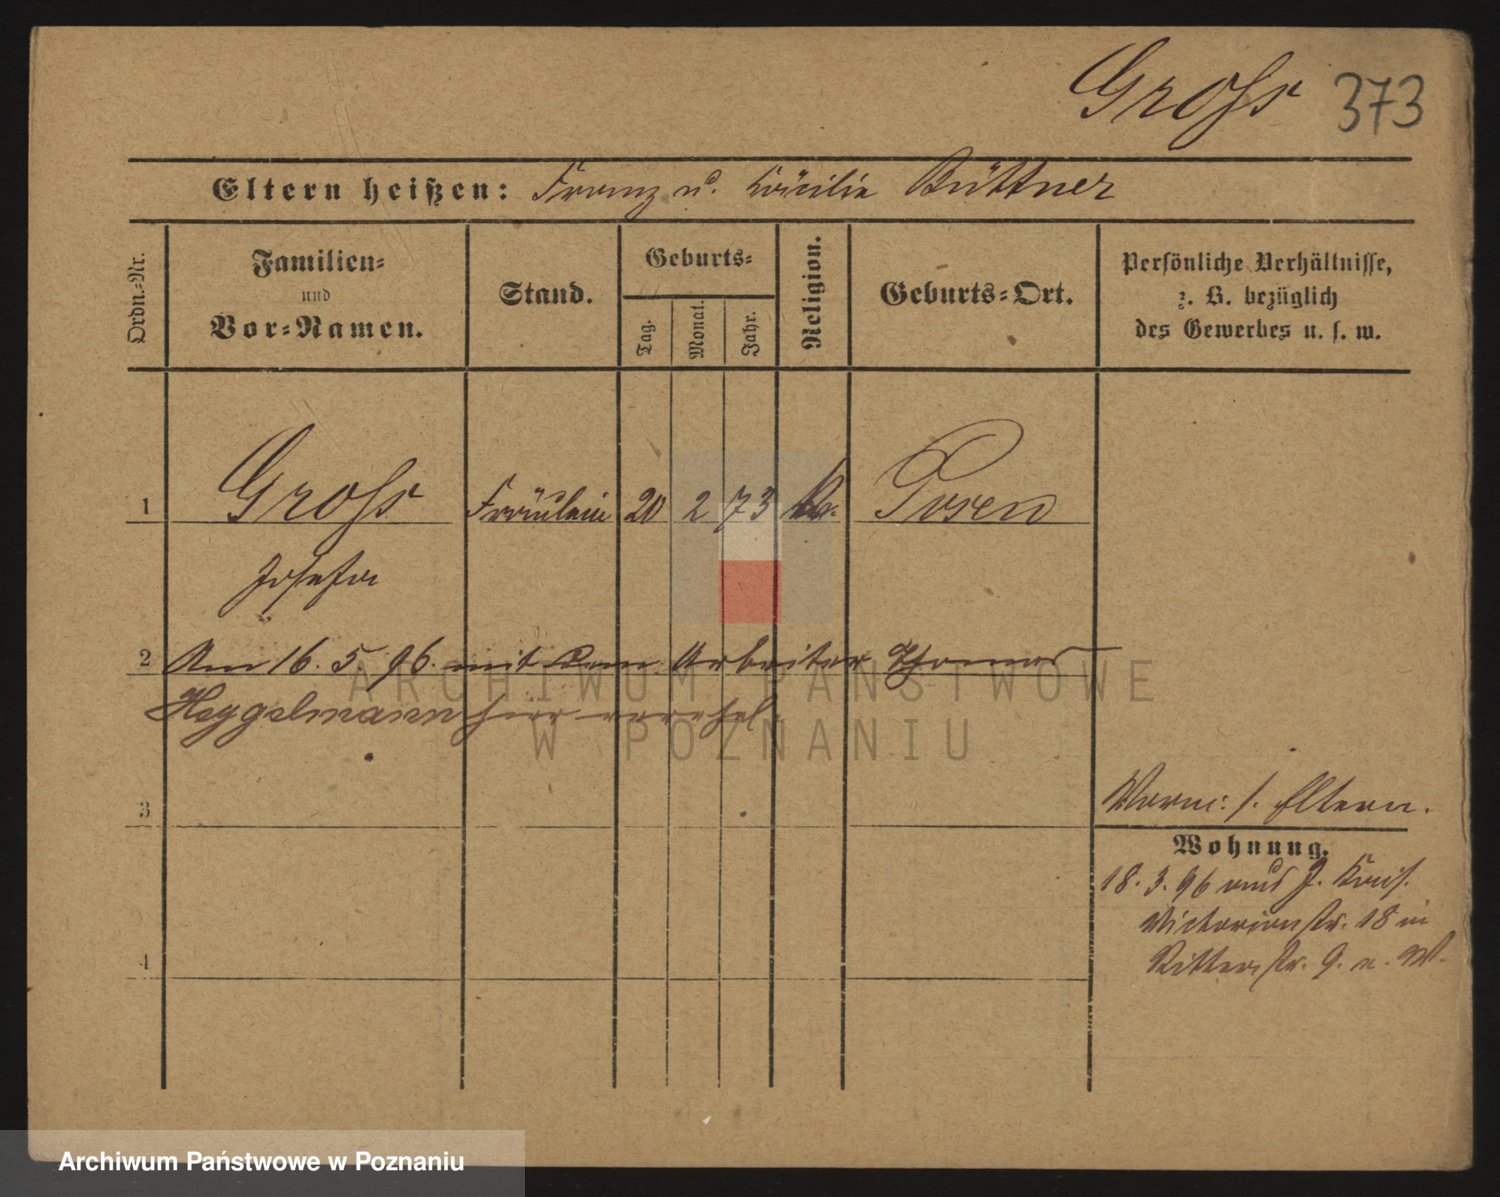 Gross 373
Eltern heißen: Franz u. Cäcilie Büttner
Ordn.-Nr.
Familien-
und
Vor-Namen.
Stand.
Geburts-
Tag.
Monat.
Jahr.
Religion.
Geburts-Ort.
Persönliche Verhältnisse,
z. B. bezüglich
des Gewerbes u. s. w.
1 Gross Fräulein 20 2 73 Posen
Josefa
2 Am 16. 5. 96. mit dem Arbeiter Thomas
Heggelmann hier verehel.
3
Eltern.
Wohnung.
18. 3. 96 aus J. Kais.
Victoriastr. 18 in
Ritterstr. 9. n. W.
4
ARCHIWUM PAŃSTWOWE
W POZNANIU
Archiwum Państwowe w Poznaniu